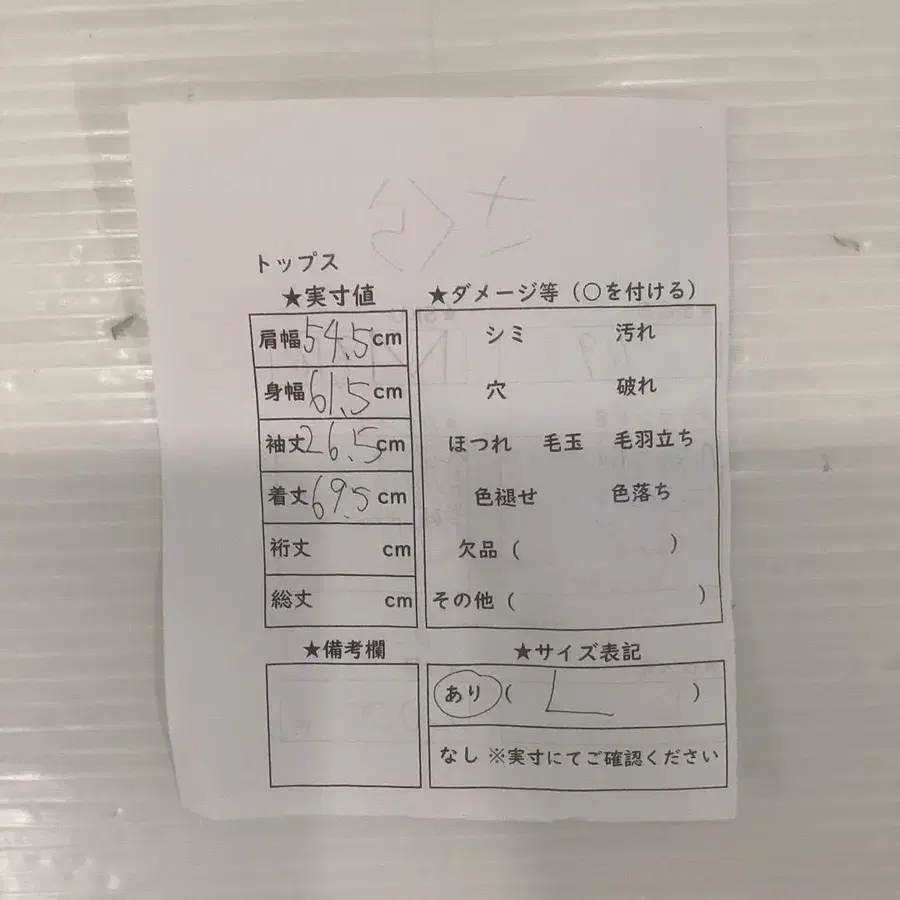 トップス
★実寸値
肩幅54.5cm
身幅61.5cm
袖丈26.5cm
着丈69.5cm
裄丈 cm
総丈 cm
★ダメージ等（○を付ける）
シミ 汚れ
穴 破れ
ほつれ 毛玉 毛羽立ち
色褪せ 色落ち
欠品（ ）
その他（ ）
★備考欄
★サイズ表記
あり（ L ）
なし ※実寸にてご確認ください